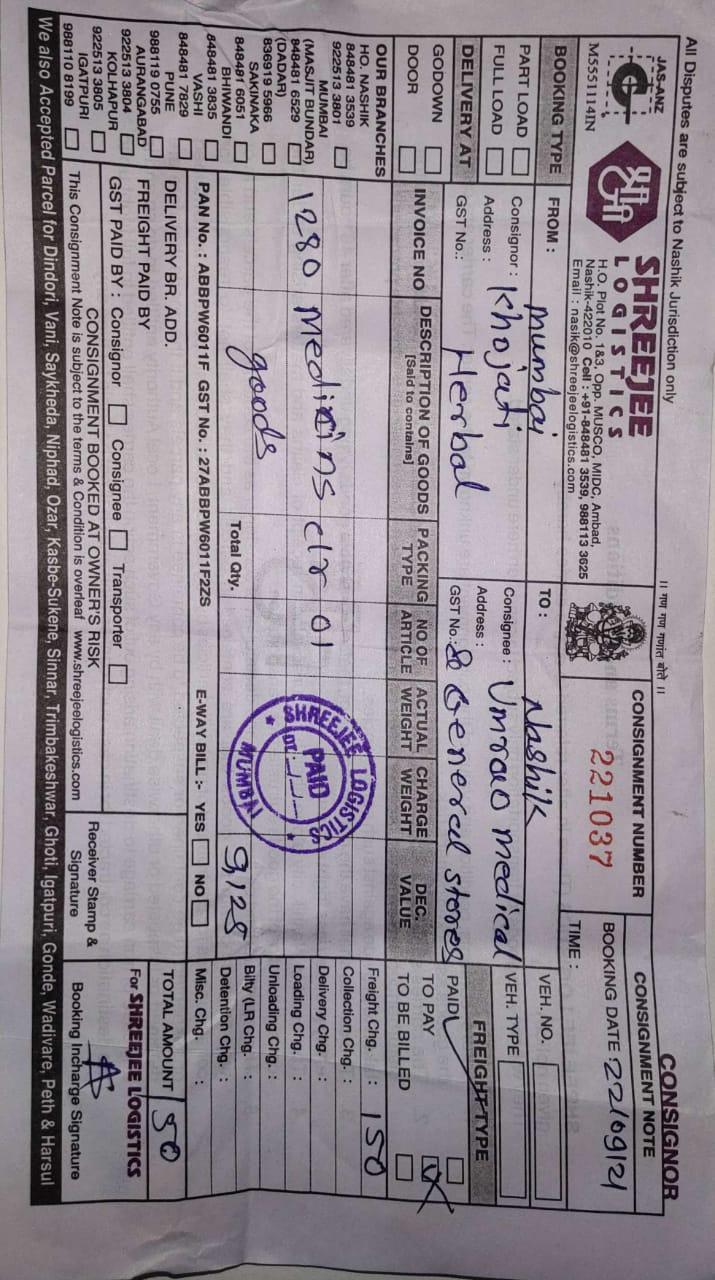 All Disputes are subject to Nashik Jurisdiction only
|| गण गण गणांत बोते ||
CONSIGNOR
JAS-ANZ
M5551114IN
श्री जी
SHREEJEE
LOGISTICS
H.O. Plot No. 1&3, Opp. MUSCO, MIDC, Ambad,
Nashik-422010 Cell : +91-848481 3539, 988113 3625
Email : nasik@shreejeelogistics.com
CONSIGNMENT NUMBER
221037
CONSIGNMENT NOTE
BOOKING DATE : 22/09/21
TIME :
BOOKING TYPE
PART LOAD
FULL LOAD
FROM : mumbai
Consignor : Khojati
Address : Herbal
GST No.:
TO : Nashik
Consignee : Umrao medical
Address :
GST No.: & General stores
VEH. NO.
VEH. TYPE
DELIVERY AT
GODOWN
DOOR
FREIGHT TYPE
PAID
TO PAY
TO BE BILLED
INVOICE NO DESCRIPTION OF GOODS [Said to contains] PACKING TYPE NO OF ARTICLE ACTUAL WEIGHT CHARGE WEIGHT DEC. VALUE
1280 medicins clr 01
goods
Total Qty. 9,128
SHREEJEE LOGISTICS
PAID
DT:
* MUMBAI *
Freight Chg. : 150
Collection Chg. :
Delivery Chg. :
Loading Chg. :
Unloading Chg. :
Bilty (LR Chg. :
Detention Chg. :
Misc. Chg. :
TOTAL AMOUNT 150
OUR BRANCHES
HO. NASHIK
848481 3539
MUMBAI
922513 3801
(MASJIT BUNDAR)
848481 6529
(DADAR)
836919 5966
SAKINAKA
848481 6051
BHIWANDI
848481 3835
VASHI
848481 7829
PUNE
988119 0755
AURANGABAD
922513 3804
KOLHAPUR
922513 3805
IGATPURI
988110 8199
PAN No. : ABBPW6011F GST No. : 27ABBPW6011F2ZS E-WAY BILL :- YES NO
DELIVERY BR. ADD.
FREIGHT PAID BY
GST PAID BY : Consignor Consignee Transporter
CONSIGNMENT BOOKED AT OWNER'S RISK
This Consignment Note is subject to the terms & Condition is overleaf www.shreejeelogistics.com
Receiver Stamp &
Signature
For SHREEJEE LOGISTICS
Booking Incharge Signature
We also Accepted Parcel for Dindori, Vani, Saykheda, Niphad, Ozar, Kasbe-Sukene, Sinnar, Trimbakeshwar, Ghoti, Igatpuri, Gonde, Wadivare, Peth & Harsul